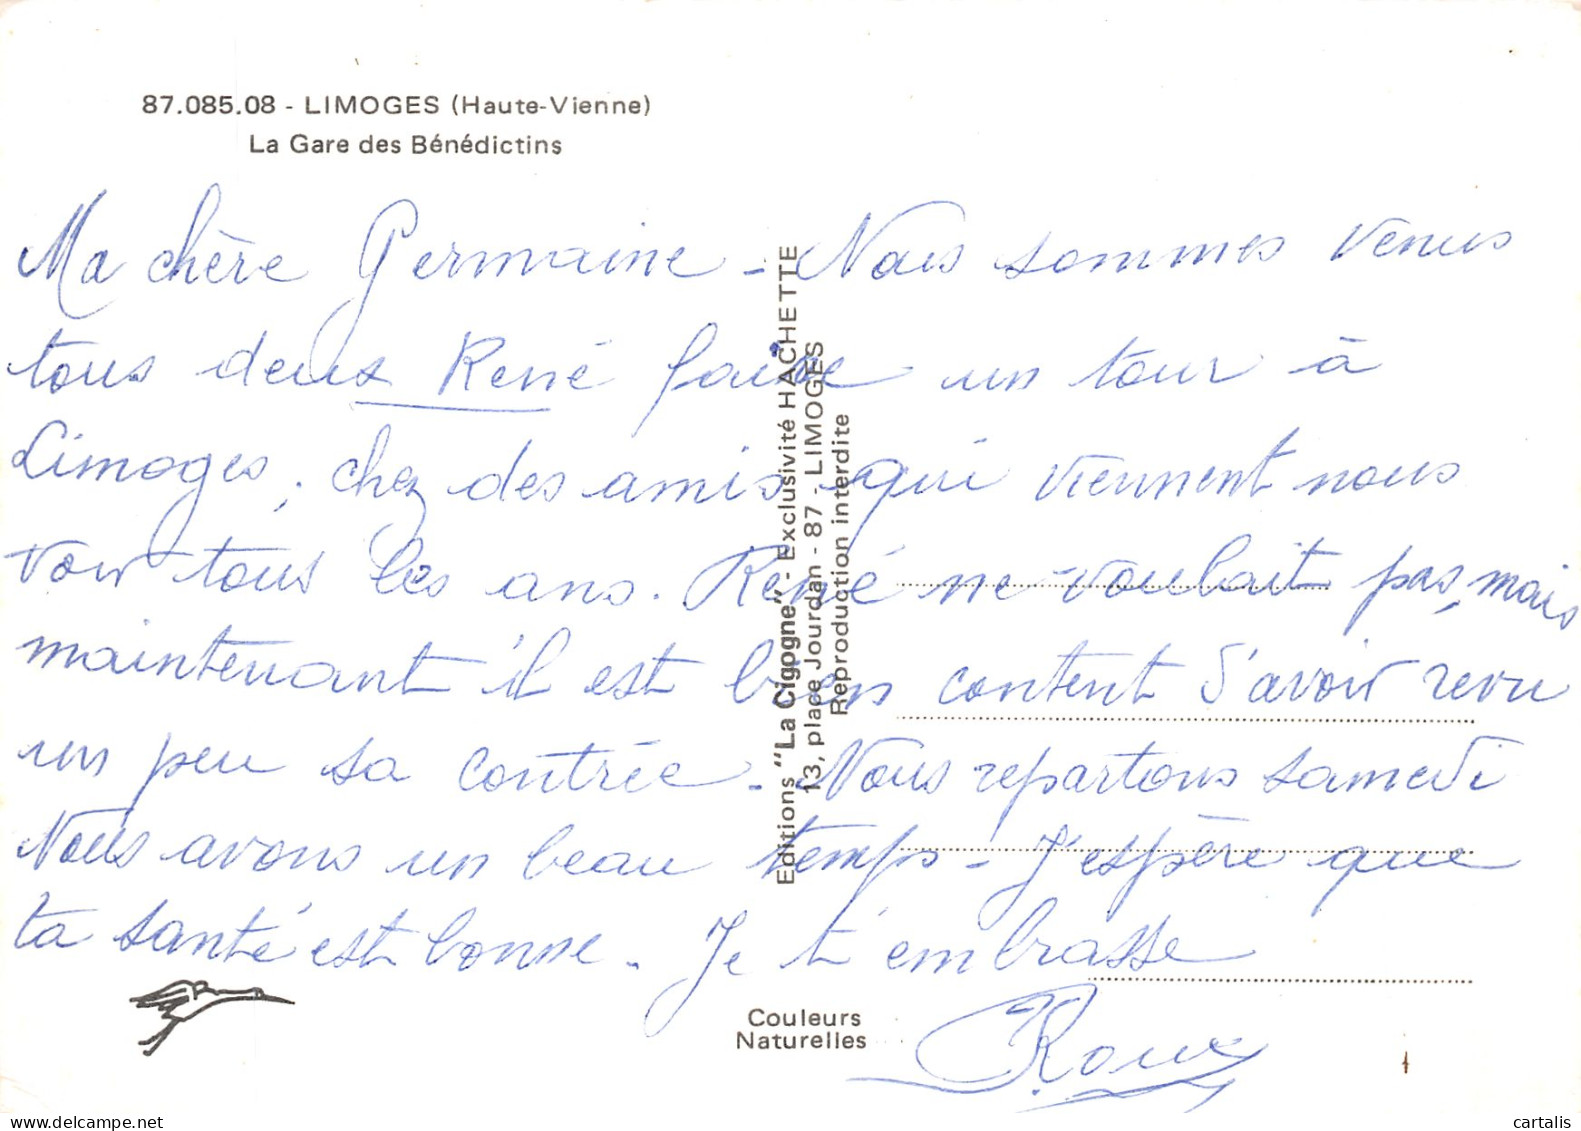 87.085.08 - LIMOGES (Haute-Vienne)
La Gare des Bénédictins
Ma chère Germaine - Nous sommes venus
tous deux René faire un tour à
Limoges, chez des amis qui viennent nous
voir tous les ans. René ne voulait pas, mais
maintenant il est bien content d'avoir revu
un peu sa contrée - Nous repartons samedi
Nous avons un beau temps - J'espère que
ta santé est bonne - Je t'embrasse
Roux
Editions "La Cigogne" - Exclusivité HACHETTE
13, place Jourdan - 87 - LIMOGES
Reproduction interdite
Couleurs
Naturelles
cartalis
www.delcampe.net